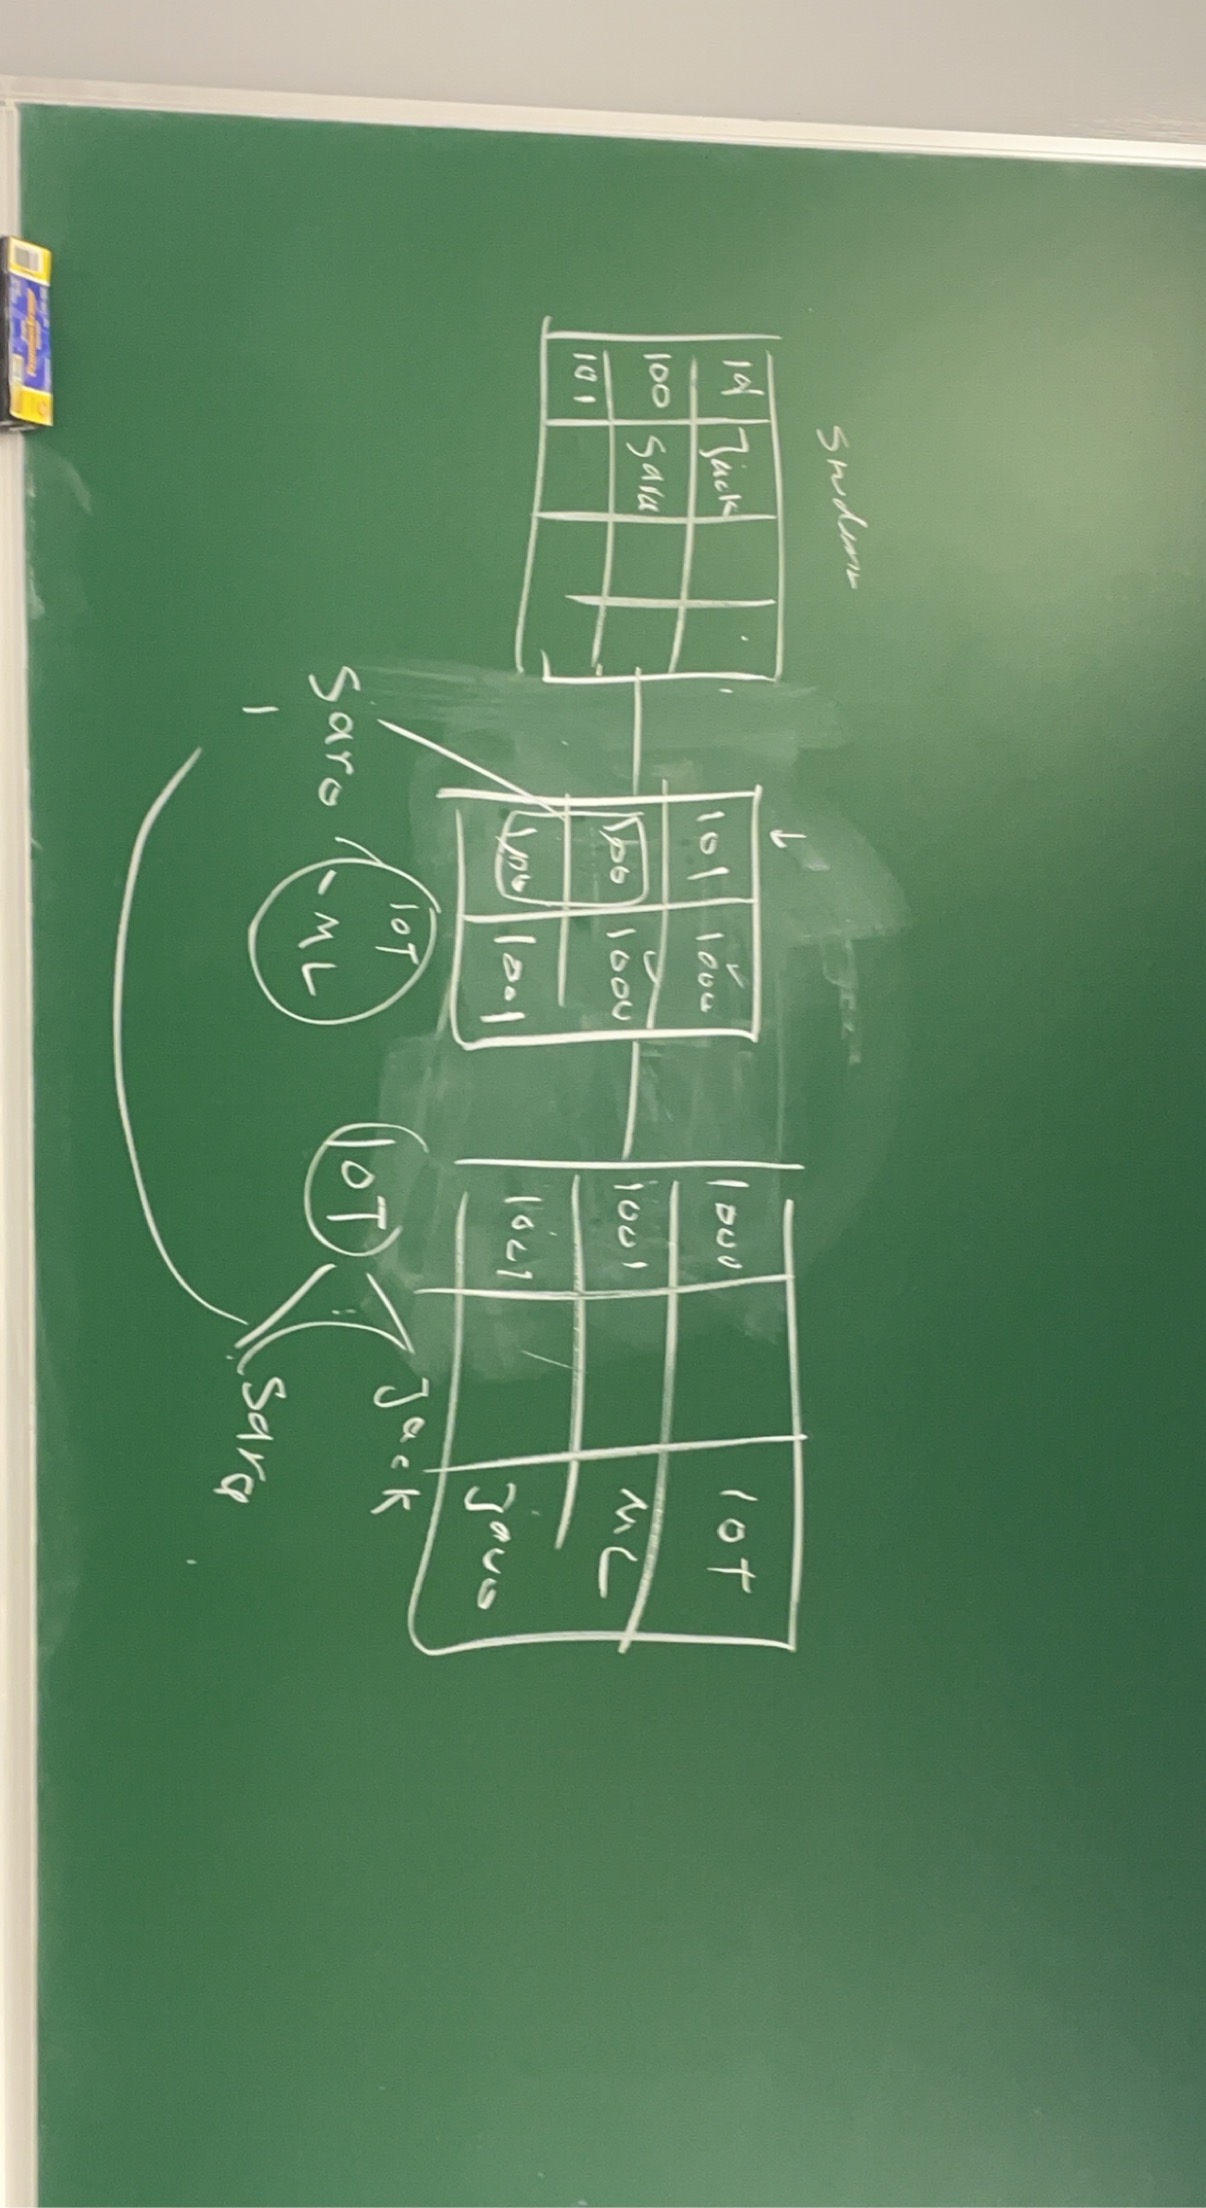 Student
101 Jack
100 Sara
101
101 1000
100 1000
100 1001
1000 IOT
1001 ML
1001 java
Sara
IOT
- ML
IOT
Jack
Sara